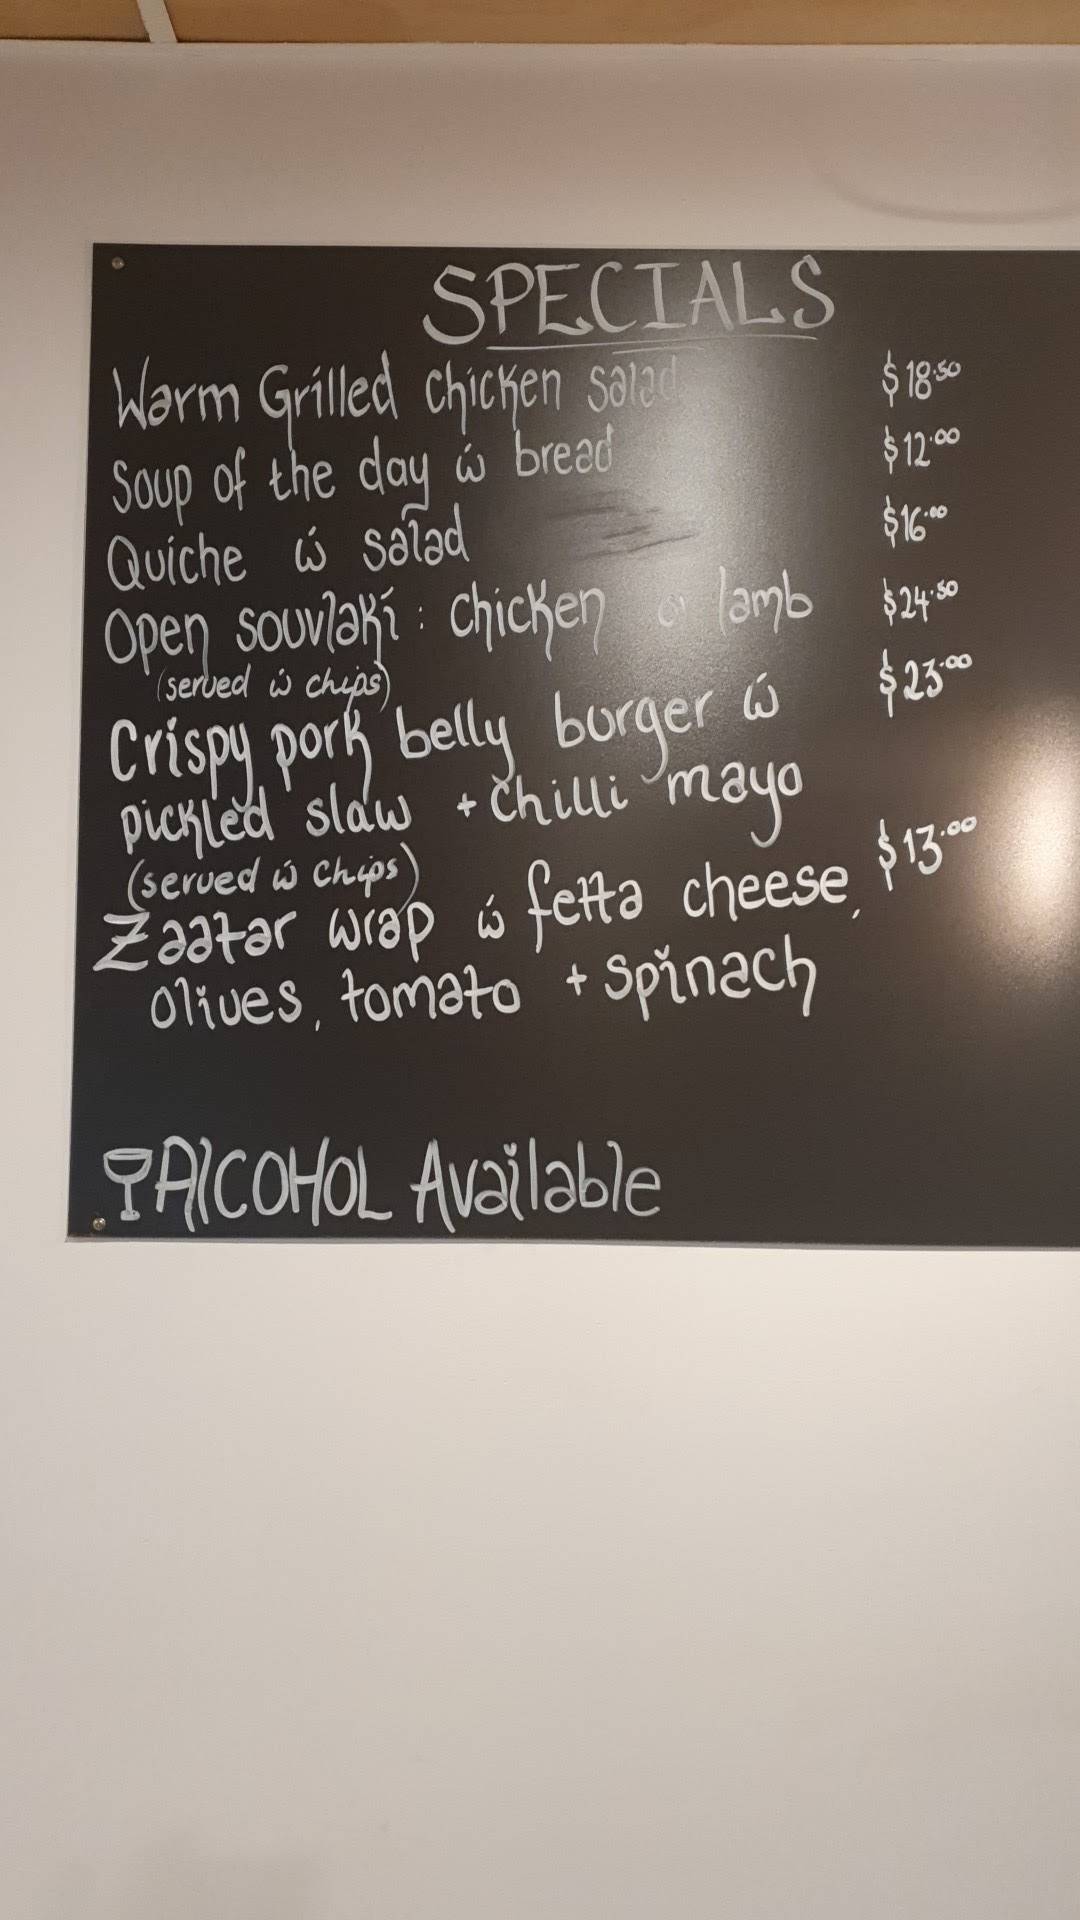 SPECIALS
Warm Grilled chicken salad $18.50
Soup of the day w bread $12.00
Quiche w salad $16.00
Open souvlaki: chicken or lamb $24.50
(served w chips)
Crispy pork belly burger w $23.00
pickled slaw + chilli mayo
(served w chips)
Zaatar wrap w fetta cheese, $13.00
olives, tomato + spinach
AlCOHOL Available